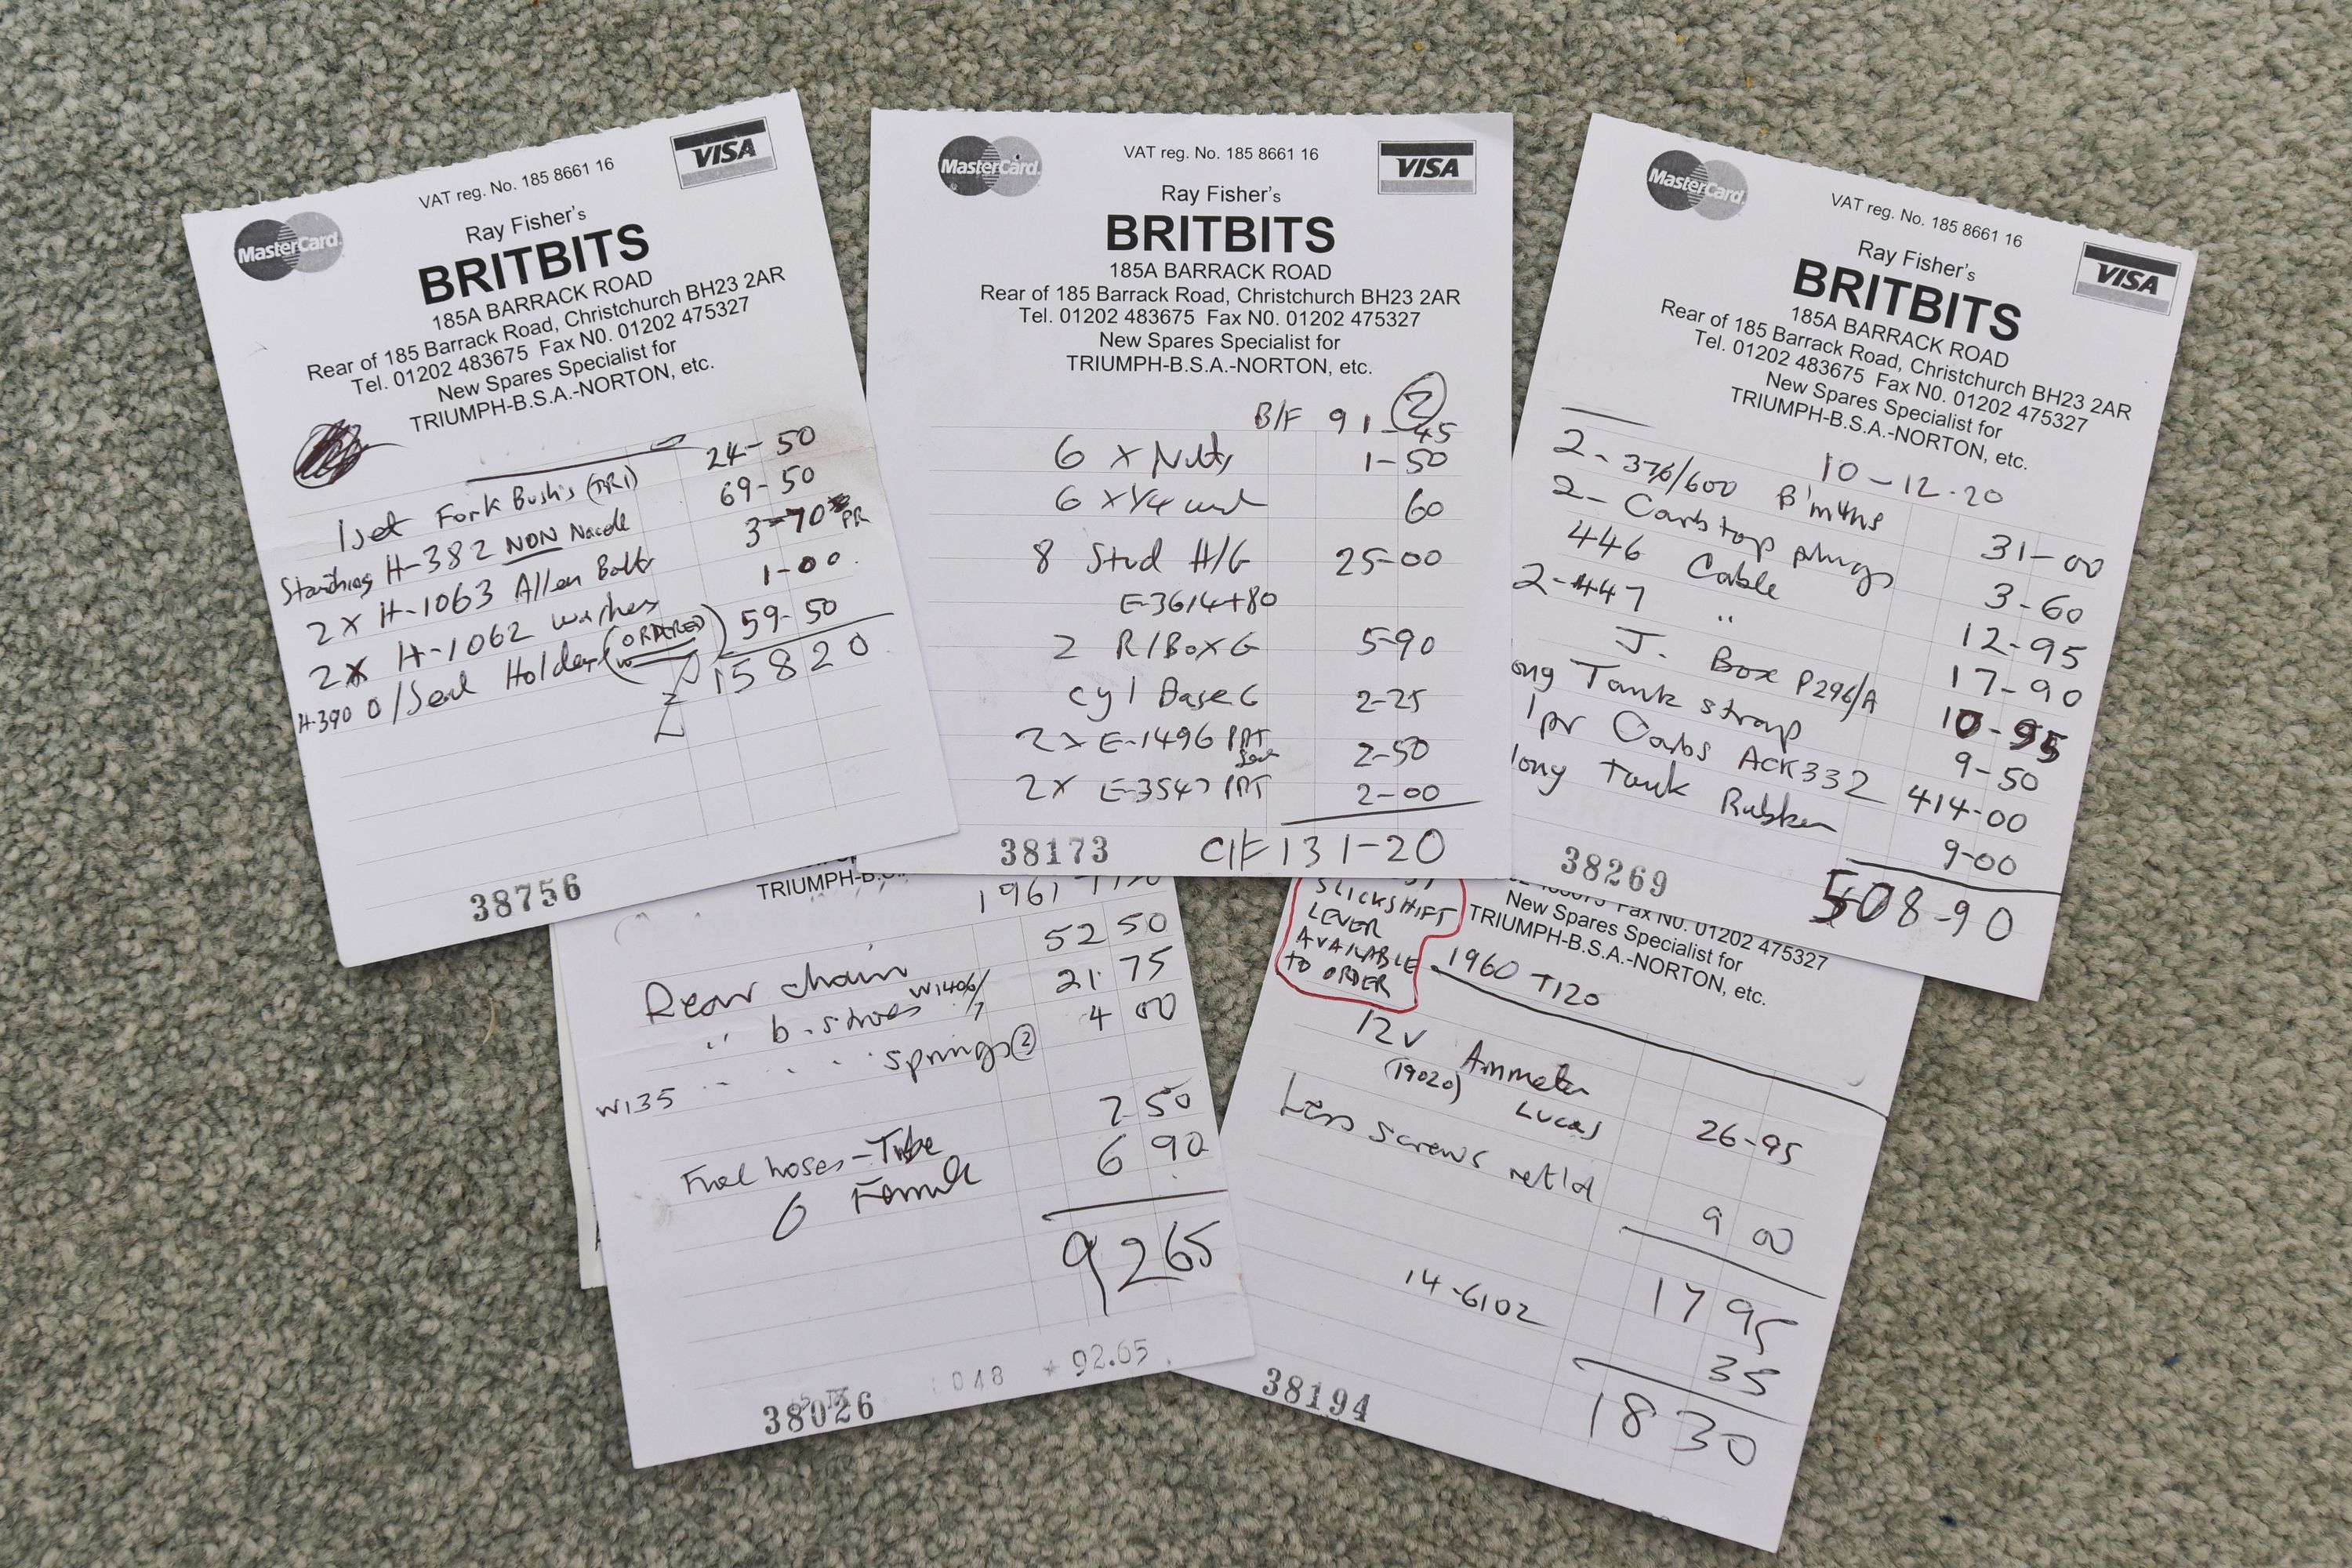 MasterCard.
VAT reg. No. 185 8661 16
VISA
Ray Fisher's
BRITBITS
185A BARRACK ROAD
Rear of 185 Barrack Road, Christchurch BH23 2AR
Tel. 01202 483675 Fax N0. 01202 475327
New Spares Specialist for
TRIUMPH-B.S.A.-NORTON, etc.
1 set Fork Bush's (TRI) 24-50
Stanchions H-382 NON Nacelle 69-50
2 x H-1063 Allen Bolts 3-70 PR
2x H-1062 washers 1-00
H-390 O/Seal Holder (ORDERED) 59-50
15820
38756
MasterCard.
VAT reg. No. 185 8661 16
VISA
Ray Fisher's
BRITBITS
185A BARRACK ROAD
Rear of 185 Barrack Road, Christchurch BH23 2AR
Tel. 01202 483675 Fax N0. 01202 475327
New Spares Specialist for
TRIUMPH-B.S.A.-NORTON, etc.
2
B/F 91-45
6 x Nuts 1-50
6 x 1/4 60
8 Stud H/G 25-00
E-3614+80
2 R/Box G 5-90
cyl Base G 2-25
2 x E-1496 PRT Seal 2-50
2x E-3547 PRT 2-00
C/F 131-20
38173
MasterCard.
VAT reg. No. 185 8661 16
VISA
Ray Fisher's
BRITBITS
185A BARRACK ROAD
Rear of 185 Barrack Road, Christchurch BH23 2AR
Tel. 01202 483675 Fax N0. 01202 475327
New Spares Specialist for
TRIUMPH-B.S.A.-NORTON, etc.
10-12-20
2- 376/600 B'mths 31-00
2- Carb top plugs 3-60
446 Cable 12-95
2-447 " 17-90
J. Box P296/A 10-95
ong Tank strap 9-50
1pr Carbs ACK332 414-00
long Tank Rubber 9-00
508-90
38269
TRIUMPH-B.S.
1961 T120
Rear chain 52 50
" b. shoes W1406/7 21.75
W135 " " springs 2 4 00
Fuel hoses - Tube 7 50
6 Ferrule 6 90
9265
048 + 92.65
38026
SLICKSHIFT
LEVER
AVAILABLE
TO ORDER
Fax N0. 01202 475327
New Spares Specialist for
TRIUMPH-B.S.A.-NORTON, etc.
1960 T120
12v Ammeter
(19020) Lucas 26-95
Less screws ret'd 9 00
17 95
14-6102 35
18 30
38194